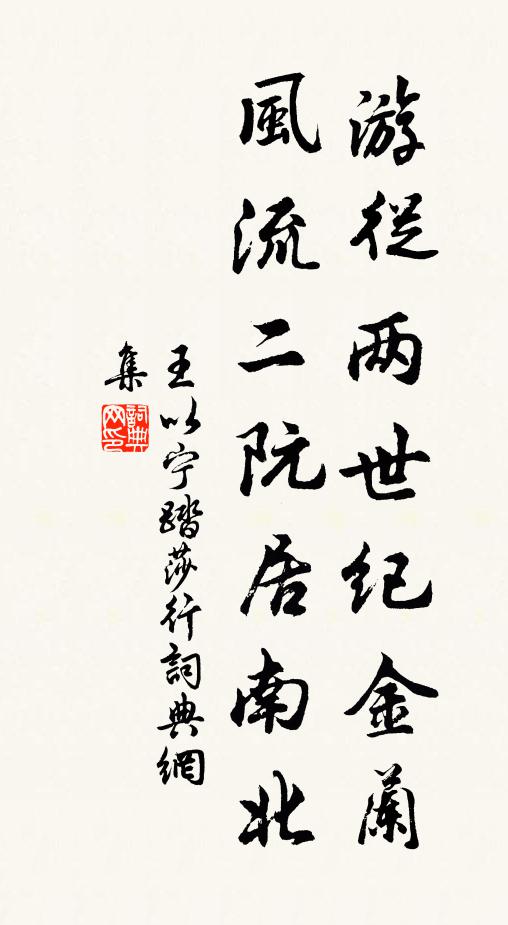 游從两世纪金蘭
風流二阮居南北
王以宁踏莎行詞典網
集
詞典
网印